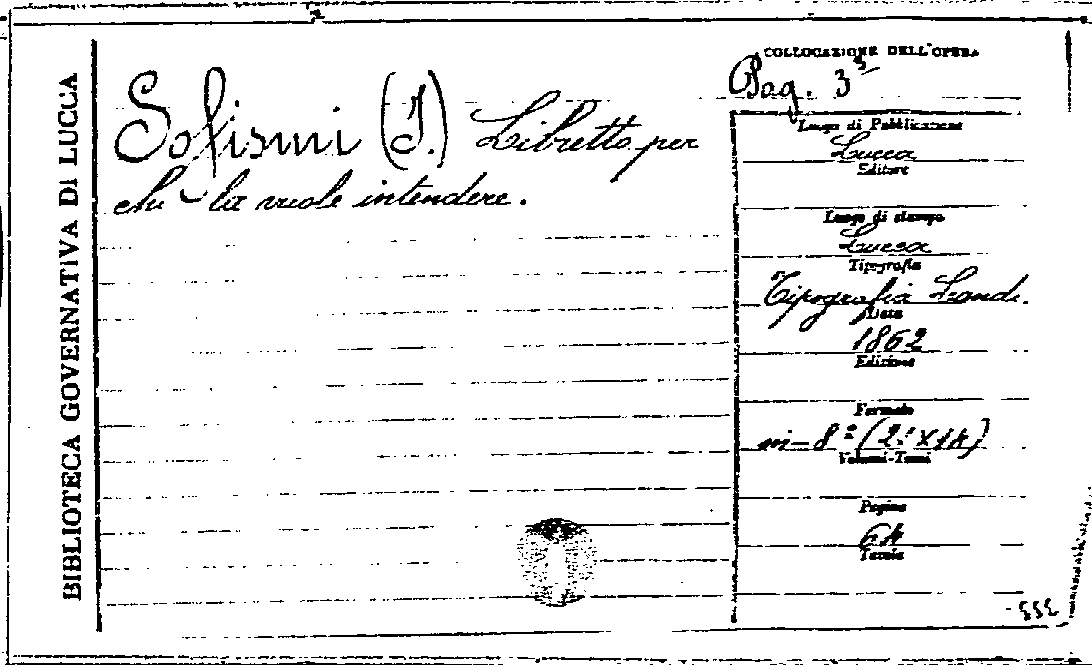 BIBLIOTECA GOVERNATIVA DI LUCCA
Sofismi (I.) Libretto per
chi la vuole intendere.
COLLOCAZIONE DELL'OPERA
Pag. 3
Luogo di Pubblicazione
Lucca
Editore
Luogo di stampa
Lucca
Tipografia
Tipografia Landi.
Data
1862
Edizione
Formato
in-8º (21x14)
Volumi-Tomi
Pagine
64
Tavole